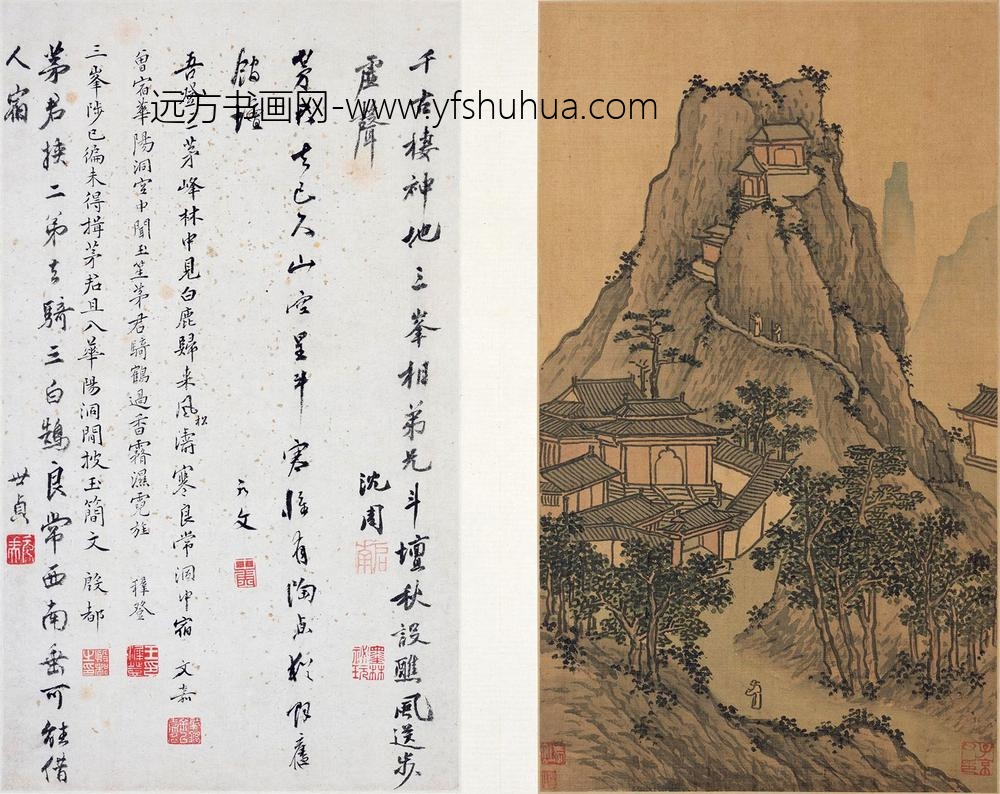 千古棲神地三峯相弟兄斗壇秋設醮風送步
虛聲
沈周
茅君去已久山空星斗寒惟有陶貞
吾登一茅峰林中見白鹿歸来風濤寒良常洞中宿 文嘉
松
曾宿華陽洞空中聞玉笙茅君騎鶴過香霧濕霓旌 穉登
王穉登印
三峯陟已徧未得揖茅君且入華陽洞閒披玉簡文 殷都
茅君挾二弟去騎三白鵠良常西南垂可能借
人宿
世貞
远方书画网-www.yfshuhua.com